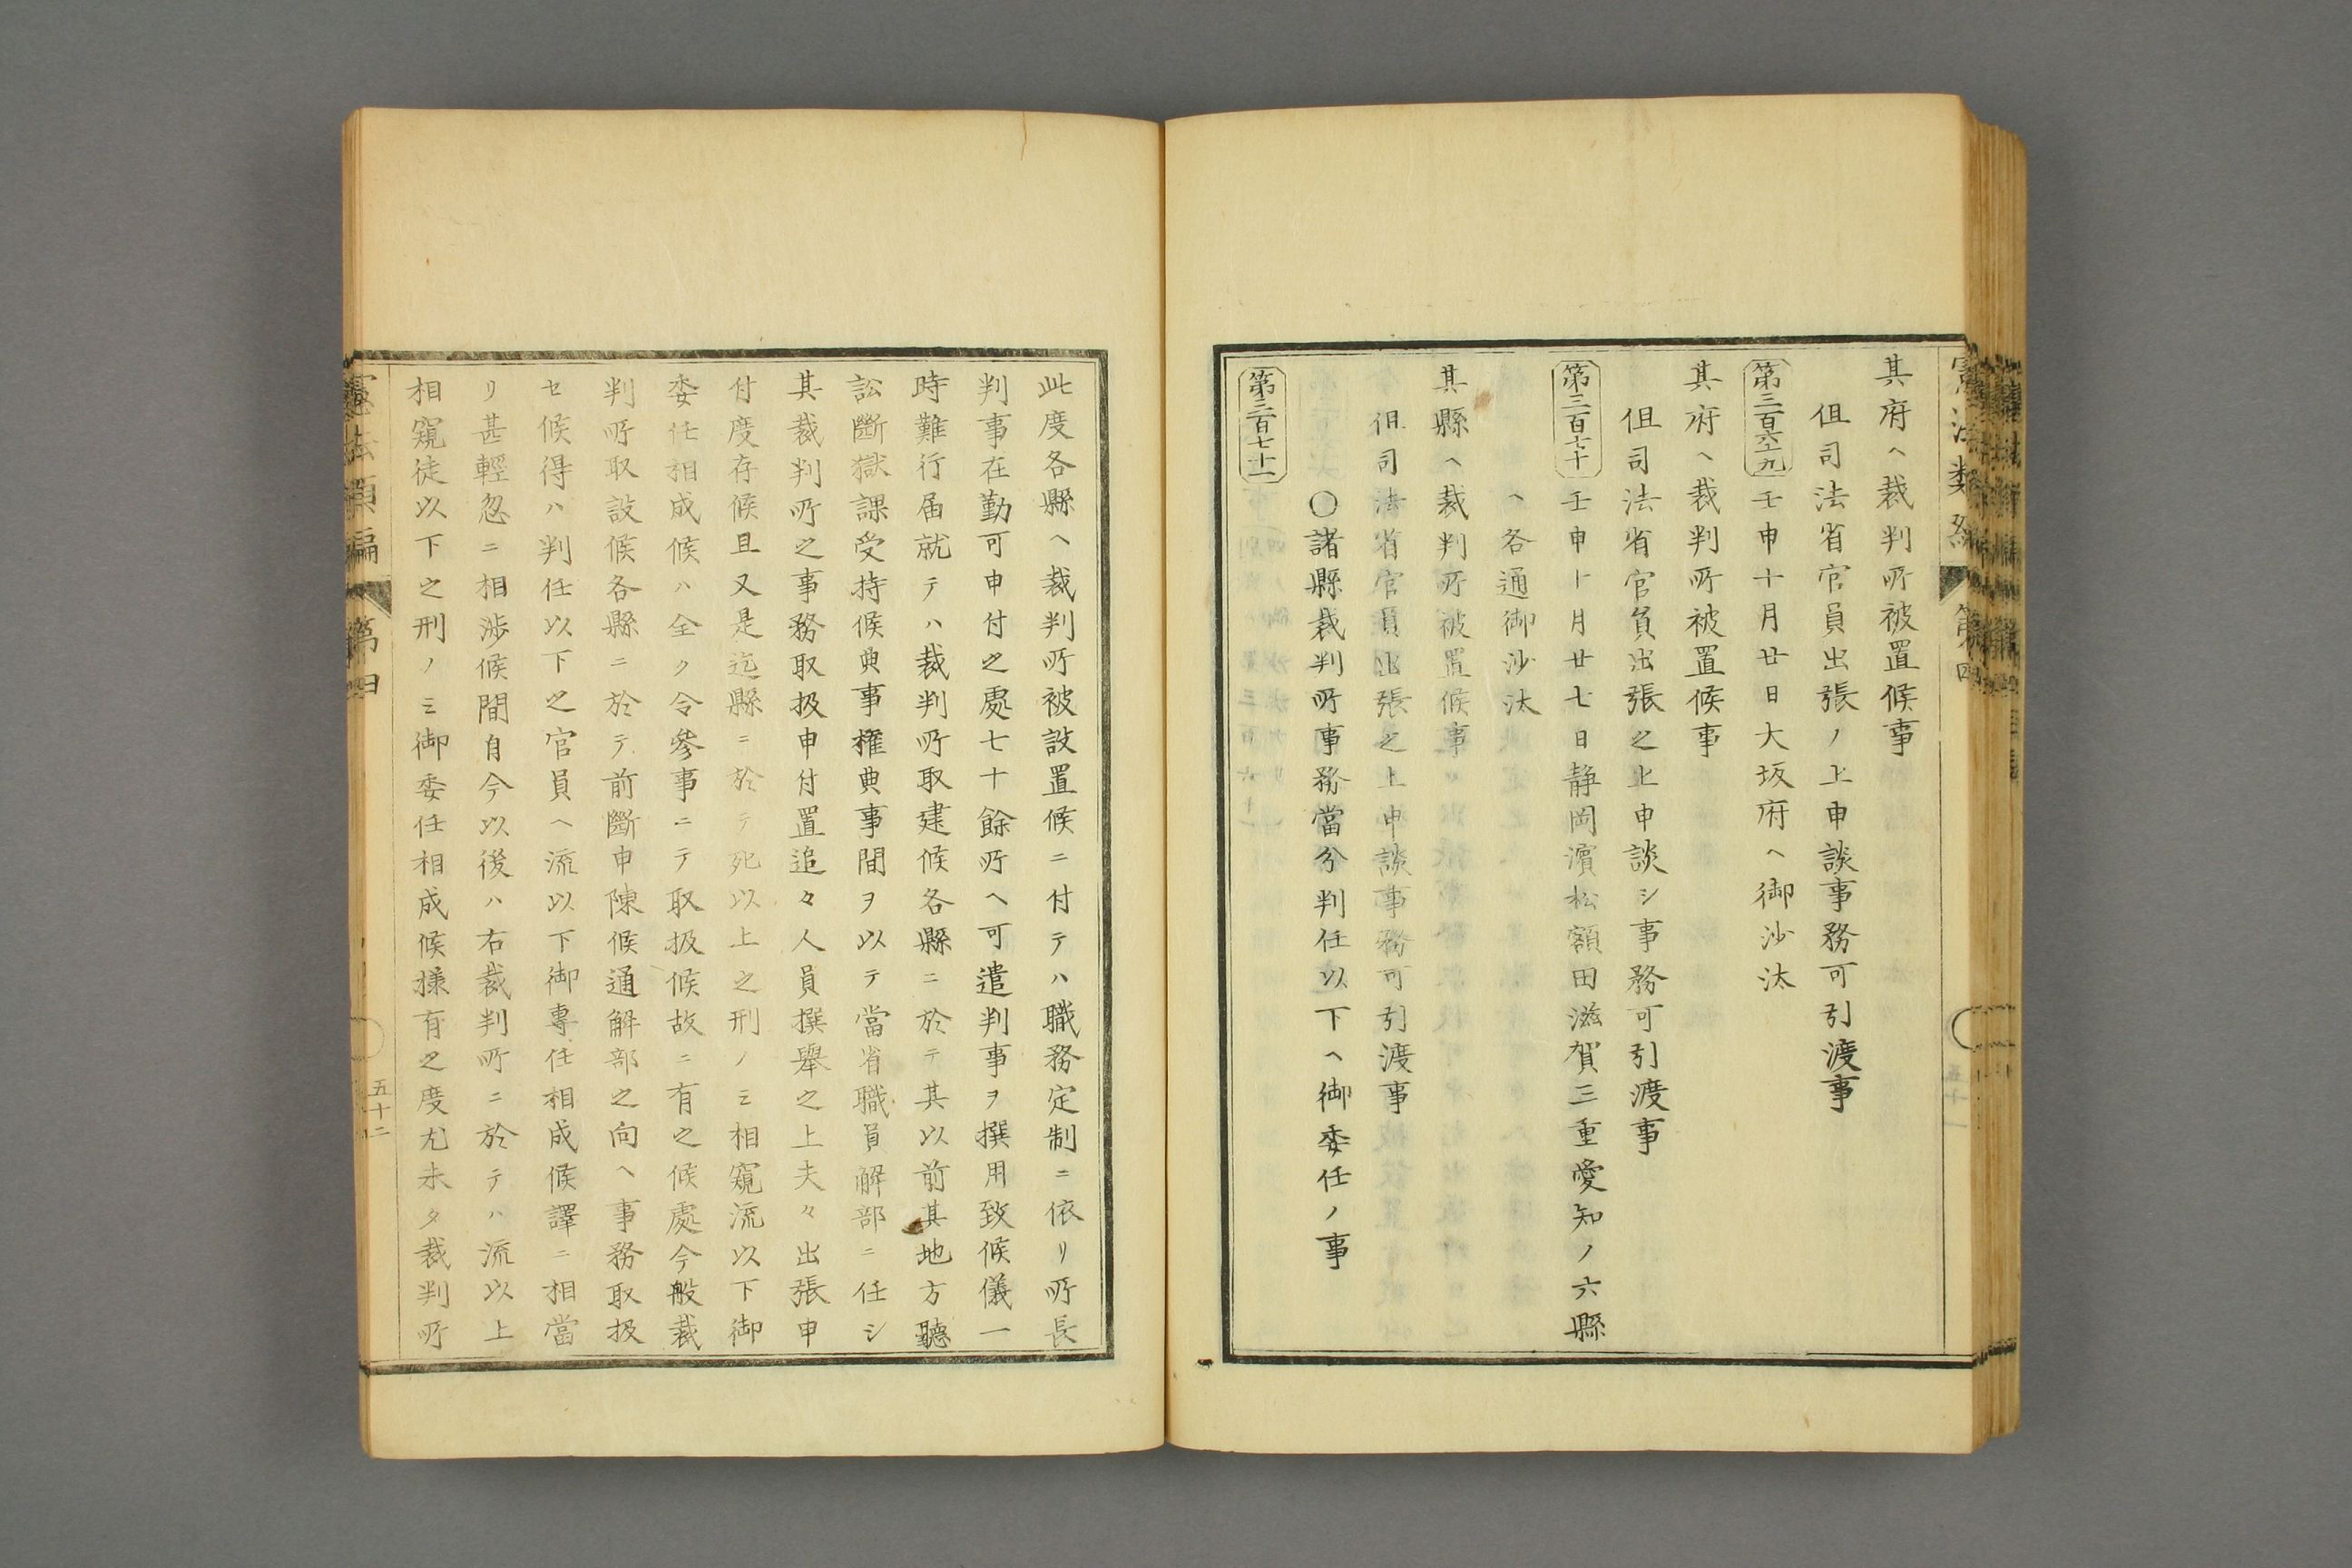 其府ヘ裁判所被置候事
但司法省官員出張ノ上申談事務可引渡事
第三百六十九 壬申十月廿日大坂府ヘ御沙汰
其府ヘ裁判所被置候事
但司法省官員出張之上申談シ事務可引渡事
第三百七十 壬申十月廿七日静岡濱松額田滋賀三重愛知ノ六縣
ヘ各通御沙汰
其縣ヘ裁判所被置候事
但司法省官員出張之上申談事務可引渡事
〇諸縣裁判所事務當分判任以下ヘ御委任ノ事
第三百七十一
此度各縣ヘ裁判所被設置候ニ付テハ職務定制ニ依リ所長
判事在勤可申付之處七十餘所ヘ可遣判事ヲ撰用致候儀一
時難行届就テハ裁判所取建候各縣ニ於テ其以前其地方聽
訟斷獄課受持候典事権典事間ヲ以テ當省職員解部ニ任シ
其裁判所之事務取扱申付置追々人員撰舉之上夫々出張申
付度存候且又是迄縣ニ於テ死以上之刑ノミ相窺流以下御
委任相成候ハ全ク令參事ニテ取扱候故ニ有之候處今般裁
判所取設候各縣ニ於テ前斷申陳候通解部之向ヘ事務取扱
セ候得ハ判任以下之官員ヘ流以下御專任相成候譯ニ相當
リ甚輕忽ニ相渉候間自今以後ハ右裁判所ニ於テハ流以上
相窺徒以下之刑ノミ御委任相成候様有之度尤未タ裁判所
憲法類編 第四
五十二